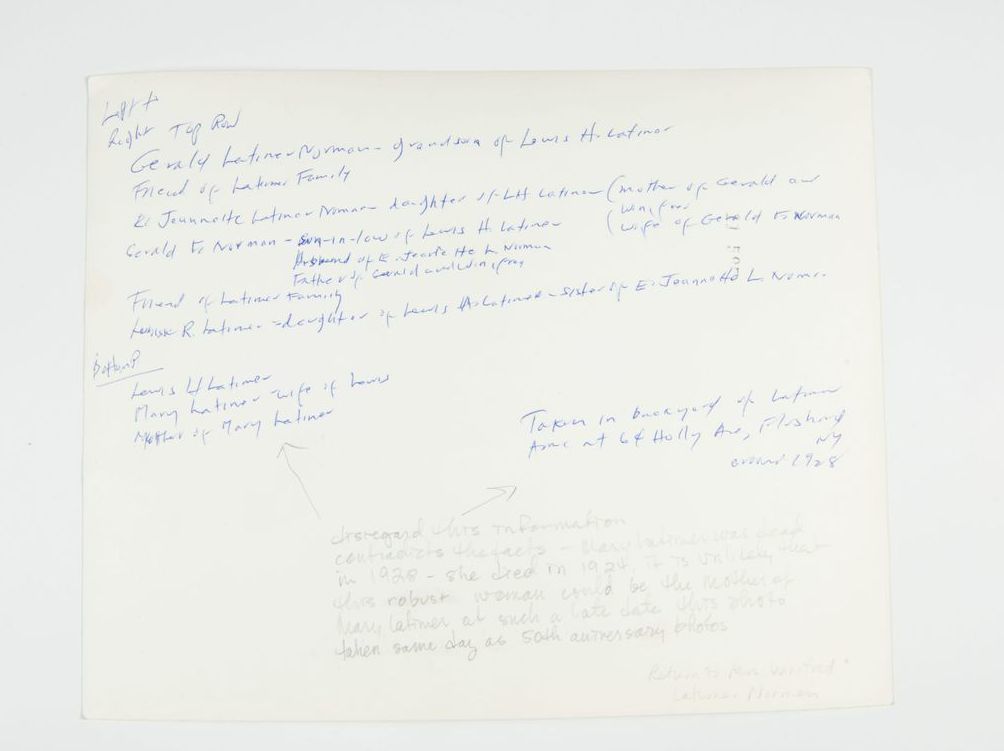 Left +
Right Top Row
Gerald Latimer Norman - grandson of Lewis H. Latimer
Friend of Latimer Family
E. Jeannette Latimer Norman - daughter of LH Latimer (mother of Gerald and
(Winifred
Gerald F. Norman - Son-in-law of Lewis H. Latimer (wife of Gerald F. Norman
Husband of E. Jeanette L. Norman
Father of Gerald and Winifred
Friend of Latimer Family
R. Latimer - daughter of Lewis H. Latimer - sister of E. Jeannette L. Norman
Bottom
Lewis H Latimer
Mary Latimer - wife of Lewis
Mother of Mary Latimer
Taken in backyard of Latimer
at 64 Holly Ave, Flushing
NY
around 1928
disregard this information
contradicts the facts - Mary Latimer was dead
in 1928 - she died in 1924. It is unlikely that
this robust woman could be the mother of
Mary Latimer at such a late date this photo
taken same day as 50th anniversary photos
Return to Miss Winifred
Latimer Norman